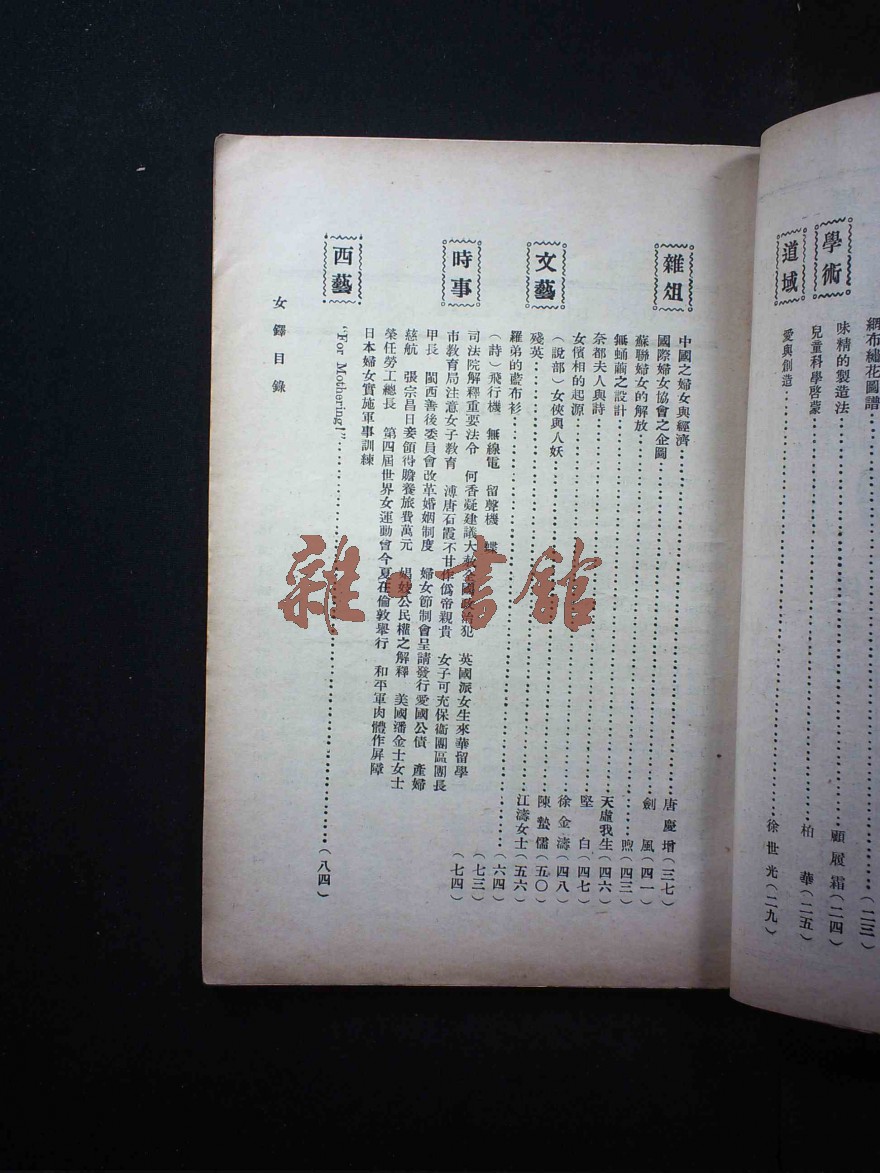 網布繡花圖譜……(二三)
學術
味精的製造法……顧履霜(二四)
兒童科學啓蒙……柏華(二五)
道域
愛與創造……徐世光(二九)
雜俎
中國之婦女與經濟……唐慶增(三七)
國際婦女協會之企圖
蘇聯婦女的解放……劍風(四一)
無蛹繭之設計……煦(四三)
奈都夫人與詩……天虛我生(四六)
女儐相的起源……堅白(四七)
文藝
(說部)女俠與八妖……徐金濤(四八)
殘英……陳蟄儒(五〇)
羅弟的藍布衫……江濤女士(五六)
(詩)飛行機 無線電 留聲機 蝶……(六四)
時事
司法院解釋重要法令 何香凝建議大赦全國政治犯 英國派女生來華留學(七三)
市教育局注意女子教育 溥唐石霞不甘作僞帝親貴 女子可充保衛團區團長(七四)
甲長 閩西善後委員會改革婚姻制度 婦女節制會呈請發行愛國公債 產婦
慈航 張宗昌日妾領得贍養旅費萬元 娼妓公民權之解釋 美國潘金士女士
榮任勞工總長 第四屆世界女運動會今夏在倫敦舉行 和平軍肉體作屏障
日本婦女實施軍事訓練
西藝
"For Mothering!"……(八四)
女鐸目錄
雜·書館